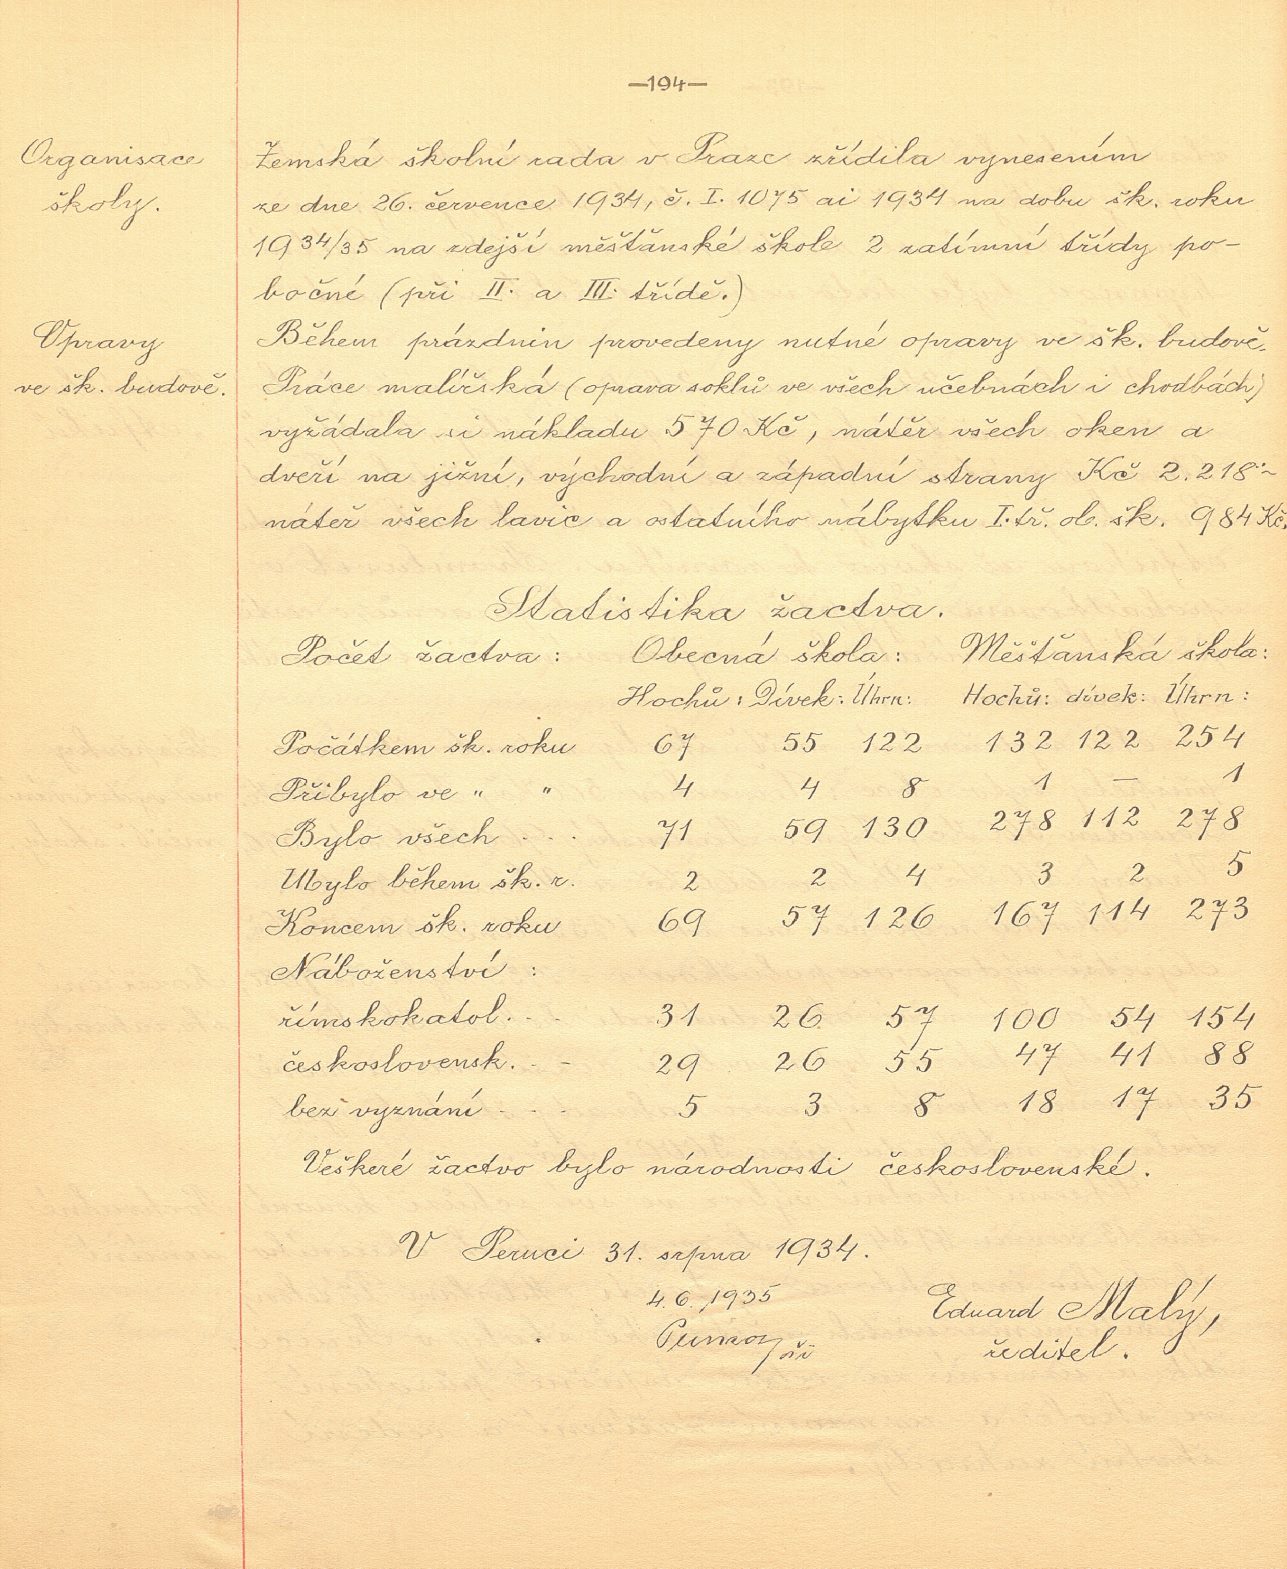 —194—
Organisace
školy.
Zemská školní rada v Praze zřídila vynesením
ze dne 26. července 1934, č. I. 1075 ai 1934 na dobu šk. roku
1934/35 na zdejší měšťanské škole 2 zatímní třídy po-
bočné (při II. a III. třídě.)
Opravy
ve šk. budově.
Během prázdnin provedeny nutné opravy ve šk. budově.
Práce malířská (oprava soklů ve všech učebnách i chodbách)
vyžádala si nákladu 570 Kč, nátěr všech oken a
dveří na jižní, východní a západní strany Kč 2.218·-
nátěr všech lavic a ostatního nábytku I. tř. ob. šk. 984 Kč.
Statistika žactva.
Počet žactva: Obecná škola: Měšťanská škola:
Hochů: Dívek: Úhrn: Hochů: dívek: Úhrn:
Počátkem šk. roku 67 55 122 132 122 254
Přibylo ve " " 4 4 8 1 — 1
Bylo všech . . . 71 59 130 278 112 278
Ubylo během šk. r. 2 2 4 3 2 5
Koncem šk. roku 69 57 126 167 114 273
Náboženství :
římskokatol. . . 31 26 57 100 54 154
československ. . - 29 26 55 47 41 88
bez vyznání . . . 5 3 8 18 17 35
Veškeré žactvo bylo národnosti československé.
V Peruci 31. srpna 1934.
4. 6. 1935
Eduard Malý,
ředitel.